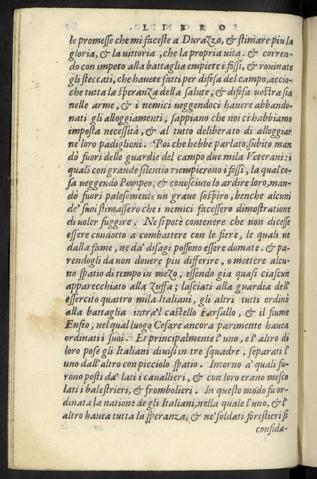 LIBRO
le promesse che mi faceste a Durazzo, & stimare piu la
gloria, & la vittoria, che la propria vita. & corren-
do con impeto alla battaglia empiete i fossi, & rouinate
gli steccati, che hauete fatti per difesa del campo, accio-
che tutta la speranza della salute, & difesa uostra sia
nelle arme, & i nemici ueggendoci hauere abbando-
nati gli alloggiamenti, sappiano che noi ci habbiamo
imposta necessità, & al tutto deliberato di alloggiar
ne' loro padiglioni. Poi che hebbe parlato, subito man
dò fuori delle guardie del campo due mila Veterani: i
quali con grande silentio riempierono i fossi, la qual co-
sa ueggendo Pompeo, & conosciuto lo ardire loro, man-
dò fuori palesemente un graue sospiro, benche alcuni
de' suoi stimassero che i nemici facessero dimostratione
di uoler fuggire. Ne si potè contenere che non dicesse
essere condotto a combattere con le fiere, le quali ne
dalla fame, ne da' disagi possono essere domate. & pa-
rendogli da non douere piu differire, o mettere alcu-
no spatio di tempo in mezo, essendo gia quasi ciascun
apparecchiato alla zuffa; lasciati alla guardia dell'
essercito quattro mila Italiani, gli altri tutti ordinò
alla battaglia intra'l castello Farsallo, & il fiume
Enfeo, nel qual luogo Cesare ancora parimente haueua
ordinati i suoi. Et principalmente l'uno, e l'altro di
loro pose gli Italiani diuisi in tre squadre, separati l'
uno dall'altro con picciolo spatio. Intorno a' quali fu-
rono posti da' lati i cauallieri, & con loro erano mesco
lati i balestrieri, & frombolieri. In questo modo fu or-
dinata la natione de gli Italiani, nella quale l'uno, & l'
altro haueua tutta la speranza, & ne' soldati forestieri si
confida-